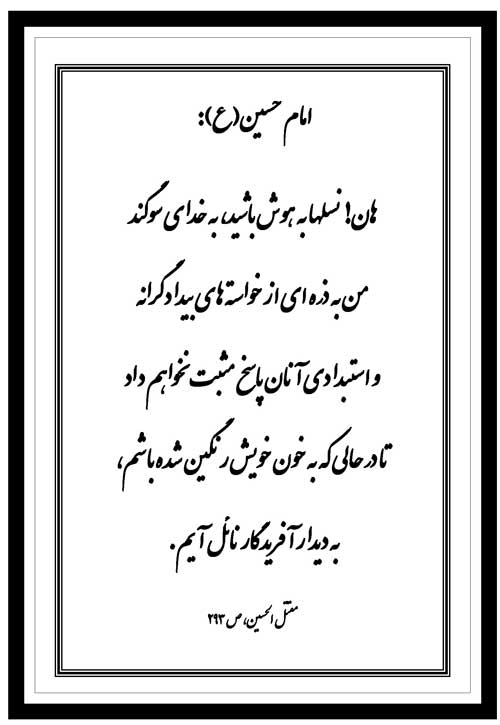 امام حسین(ع):
هان! نسلها به هوش باشید، به خدای سوگند
من به ذره ای از خواسته های بیدادگرانه
و استبدادی آنان پاسخ مثبت نخواهم داد
تا در حالی که به خون خویش رنگین شده باشم،
به دیدار آفریدگار نائل آیم.
مقتل الحسین، ص ۲۹۳